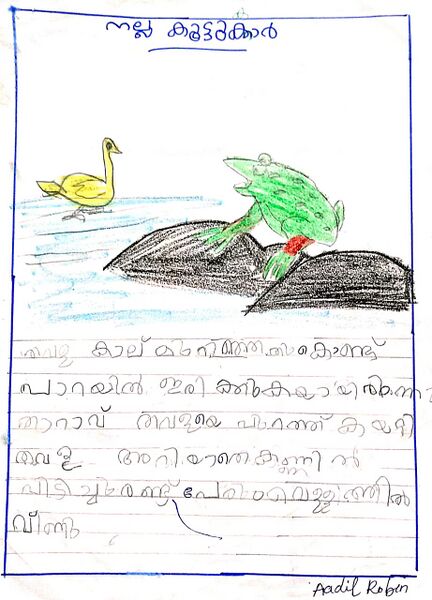 നല്ല കൂട്ടുകാർ
തവള കാല് മുറിഞ്ഞതുകൊണ്ട്
പാറയിൽ ഇരിക്കുകയായിരുന്നു
താറാവ് തവളയെ പുറത്ത് കയറ്റി
തവള അറിയാതെ കണ്ണിൽ
പിടിച്ചു രണ്ട് പേരും വെള്ളത്തിൽ
വീണു
Aadil Robin